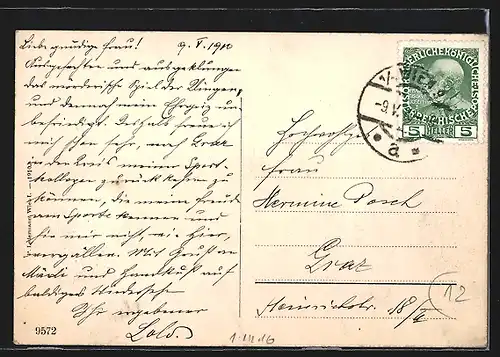 Liebe gnädige Frau! 9. V. 1910
Ausgefochten und ausgeklungen
das mörderische Spiel der Klingen,
und dennoch mein Ehrgeiz un-
befriedigt. Deshalb freue ich
mich schon sehr, nach Graz
in den Kreis meiner Sport-
kollegen zurückkehren zu
können, die meine Freude
am Sporte kennen und
sie mir nicht, wie hier,
vergällen. Mit Gruß an
und Handkuß auf
baldiges Wiedersehn
Ihr ergebener
9572
1910/13
WIEN
-9.V.
a
KAISERLICHE KÖNIGLICHE
ÖSTERREICHISCHE POST
5 HELLER 5
Hochwohlgeb.
Frau
Hermine Posch
Graz
Heinrichstr. 18/I
12
1.III.16